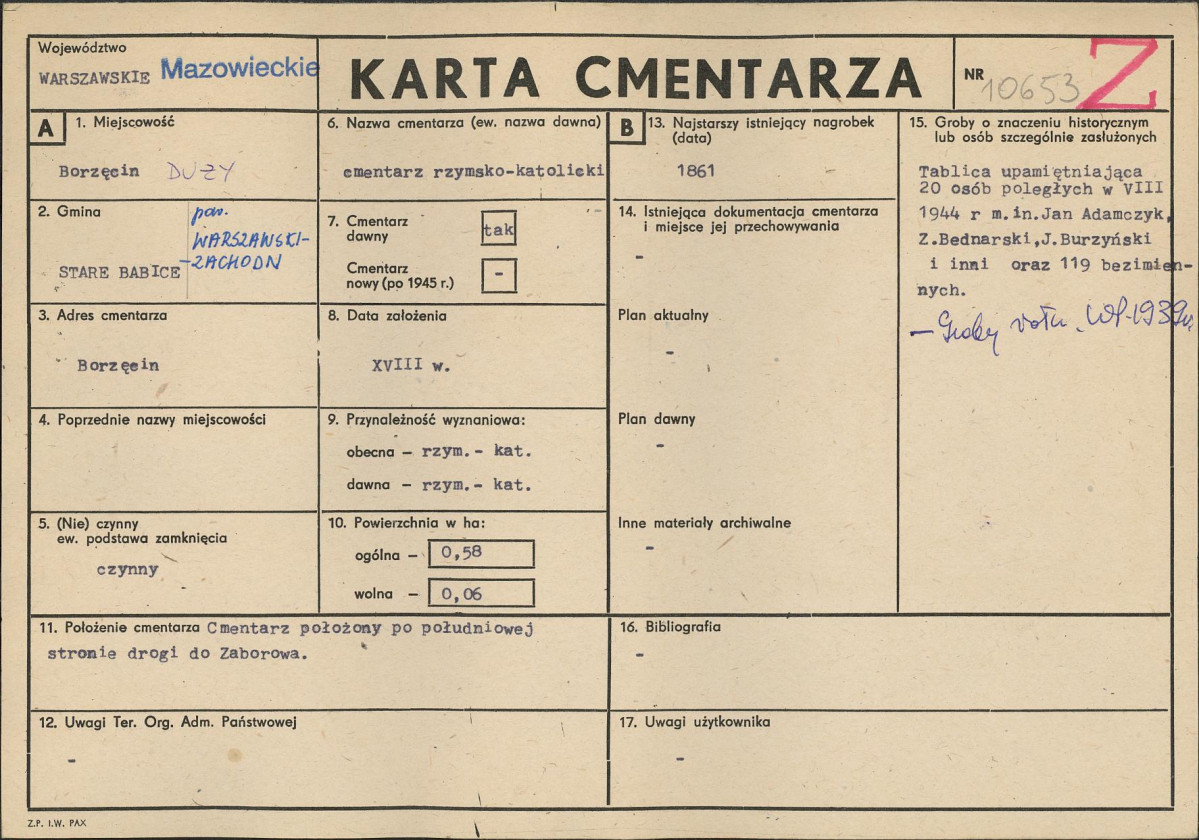 Województwo
WARSZAWSKIE Mazowieckie
KARTA CMENTARZA
NR 10653 Z
A
1. Miejscowość
Borzęcin DUŻY
2. Gmina
pow.
WARSZAWSKI-
-ZACHODN
STARE BABICE
3. Adres cmentarza
Borzęcin
4. Poprzednie nazwy miejscowości
5. (Nie) czynny
ew. podstawa zamknięcia
czynny
6. Nazwa cmentarza (ew. nazwa dawna)
cmentarz rzymsko-katolicki
7. Cmentarz
dawny
tak
Cmentarz
nowy (po 1945 r.)
-
8. Data założenia
XVIII w.
9. Przynależność wyznaniowa:
obecna – rzym.- kat.
dawna – rzym.- kat.
10. Powierzchnia w ha:
ogólna – 0,58
wolna – 0,06
11. Położenie cmentarza Cmentarz położony po południowej
stronie drogi do Zaborowa.
12. Uwagi Ter. Org. Adm. Państwowej
-
B
13. Najstarszy istniejący nagrobek
(data)
1861
14. Istniejąca dokumentacja cmentarza
i miejsce jej przechowywania
-
Plan aktualny
-
Plan dawny
-
Inne materiały archiwalne
-
15. Groby o znaczeniu historycznym
lub osób szczególnie zasłużonych
Tablica upamiętniająca
20 osób poległych w VIII
1944 r m.in. Jan Adamczyk,
Z.Bednarski,J.Burzyński
i inni oraz 119 bezimien-
nych.
– Groby żołn. WP-1939r.
16. Bibliografia
-
17. Uwagi użytkownika
-
Z.P. I.W. PAX